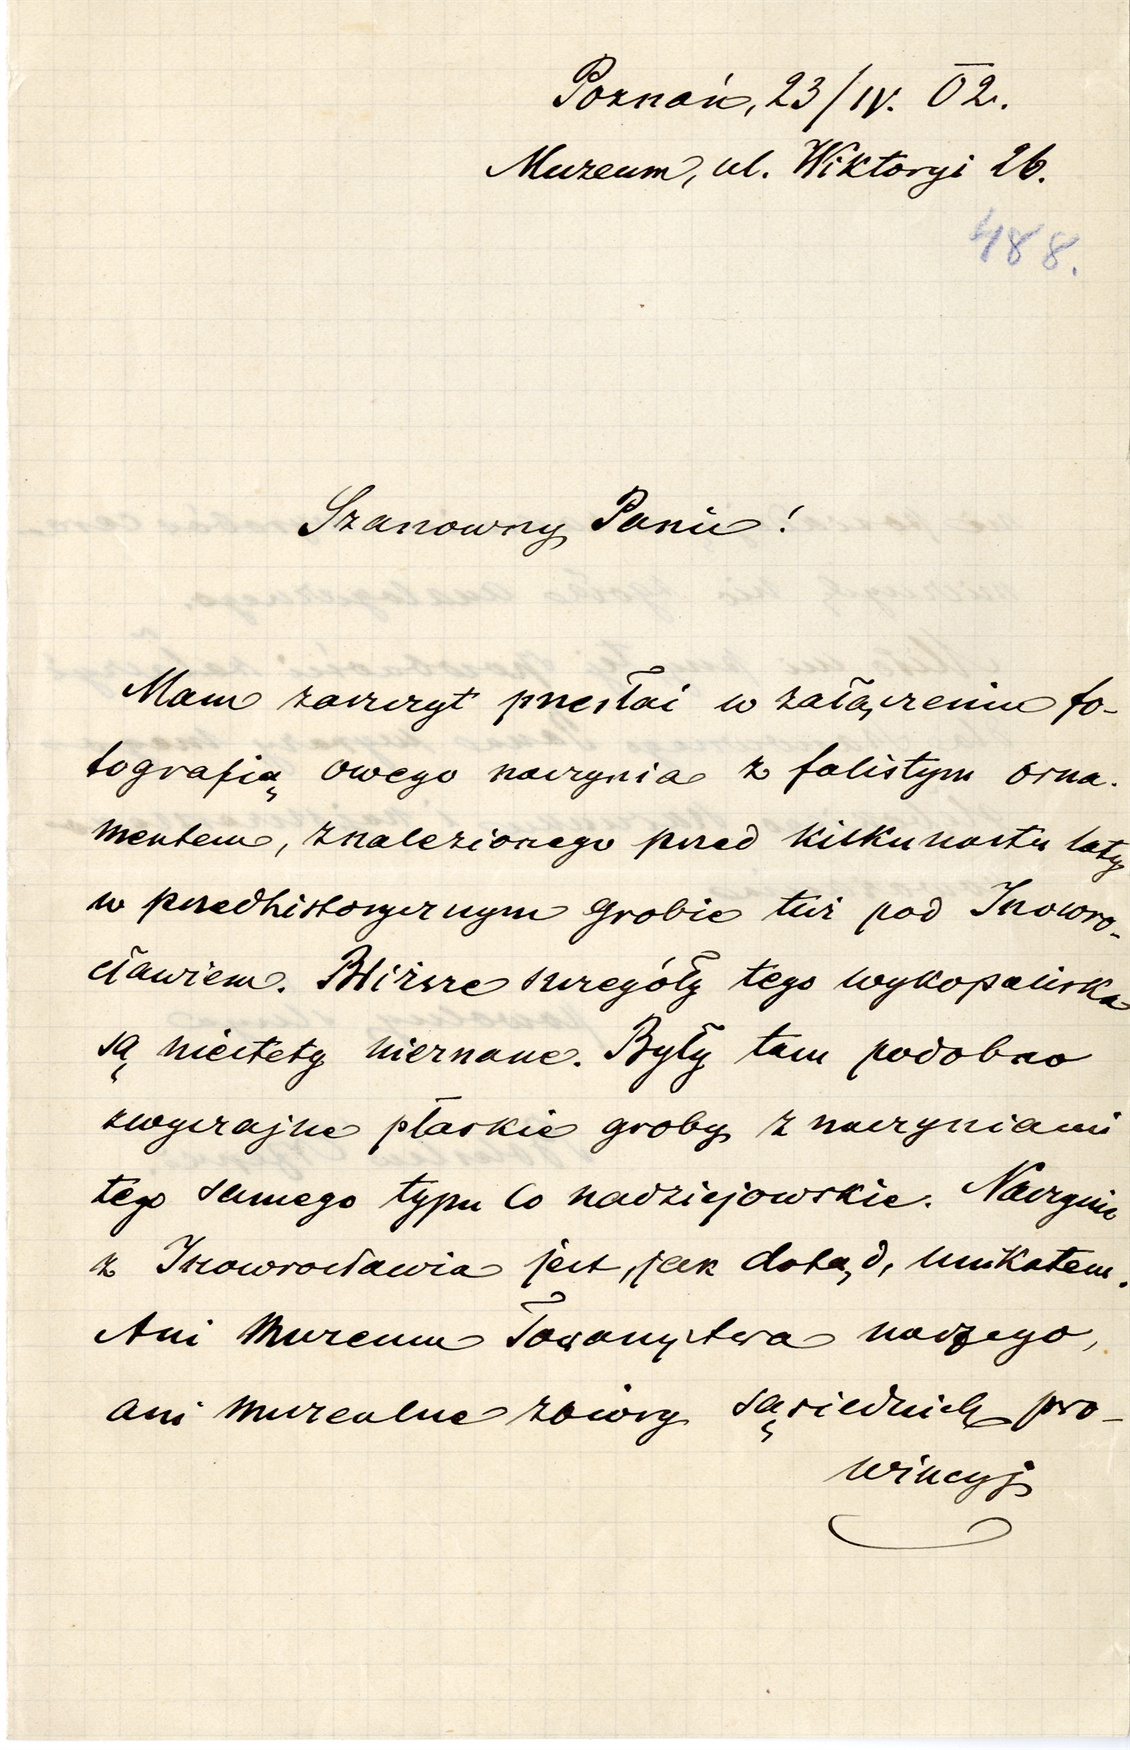 Poznań, 23/IV. 02.
Muzeum, ul. Wiktoryi 26.
488.
Szanowny Panie!
Mam zaszczyt przesłać w załączeniu fo-
tografią owego naczynia z falistym orna-
mentem, znalezionego przed kilkunastu laty
w przedhistorycznym grobie tuż pod Inowro-
cławiem. Bliższe szczegóły tego wykopaliska
są niestety nieznane. Były tam podobno
zwyczajne płaskie groby z naczyniami
tego samego typu co nadziejowskie. Naczynie
z Inowrocławia jest, jak dotąd, unikatem.
Ani Muzeum Towarzystwa naszego,
ani muzealne zbiory sąsiednich pro-
wincyj